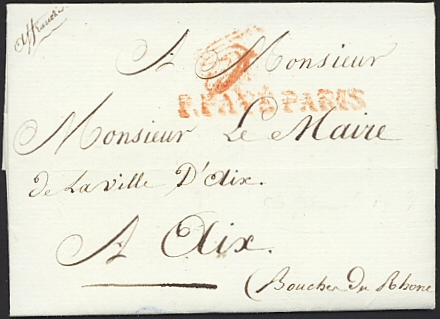 affranchie
A Monsieur
P.PAYÉ PARIS
Monsieur Le Maire
de La Ville D'Aix.
A Aix.
(Bouches du Rhone